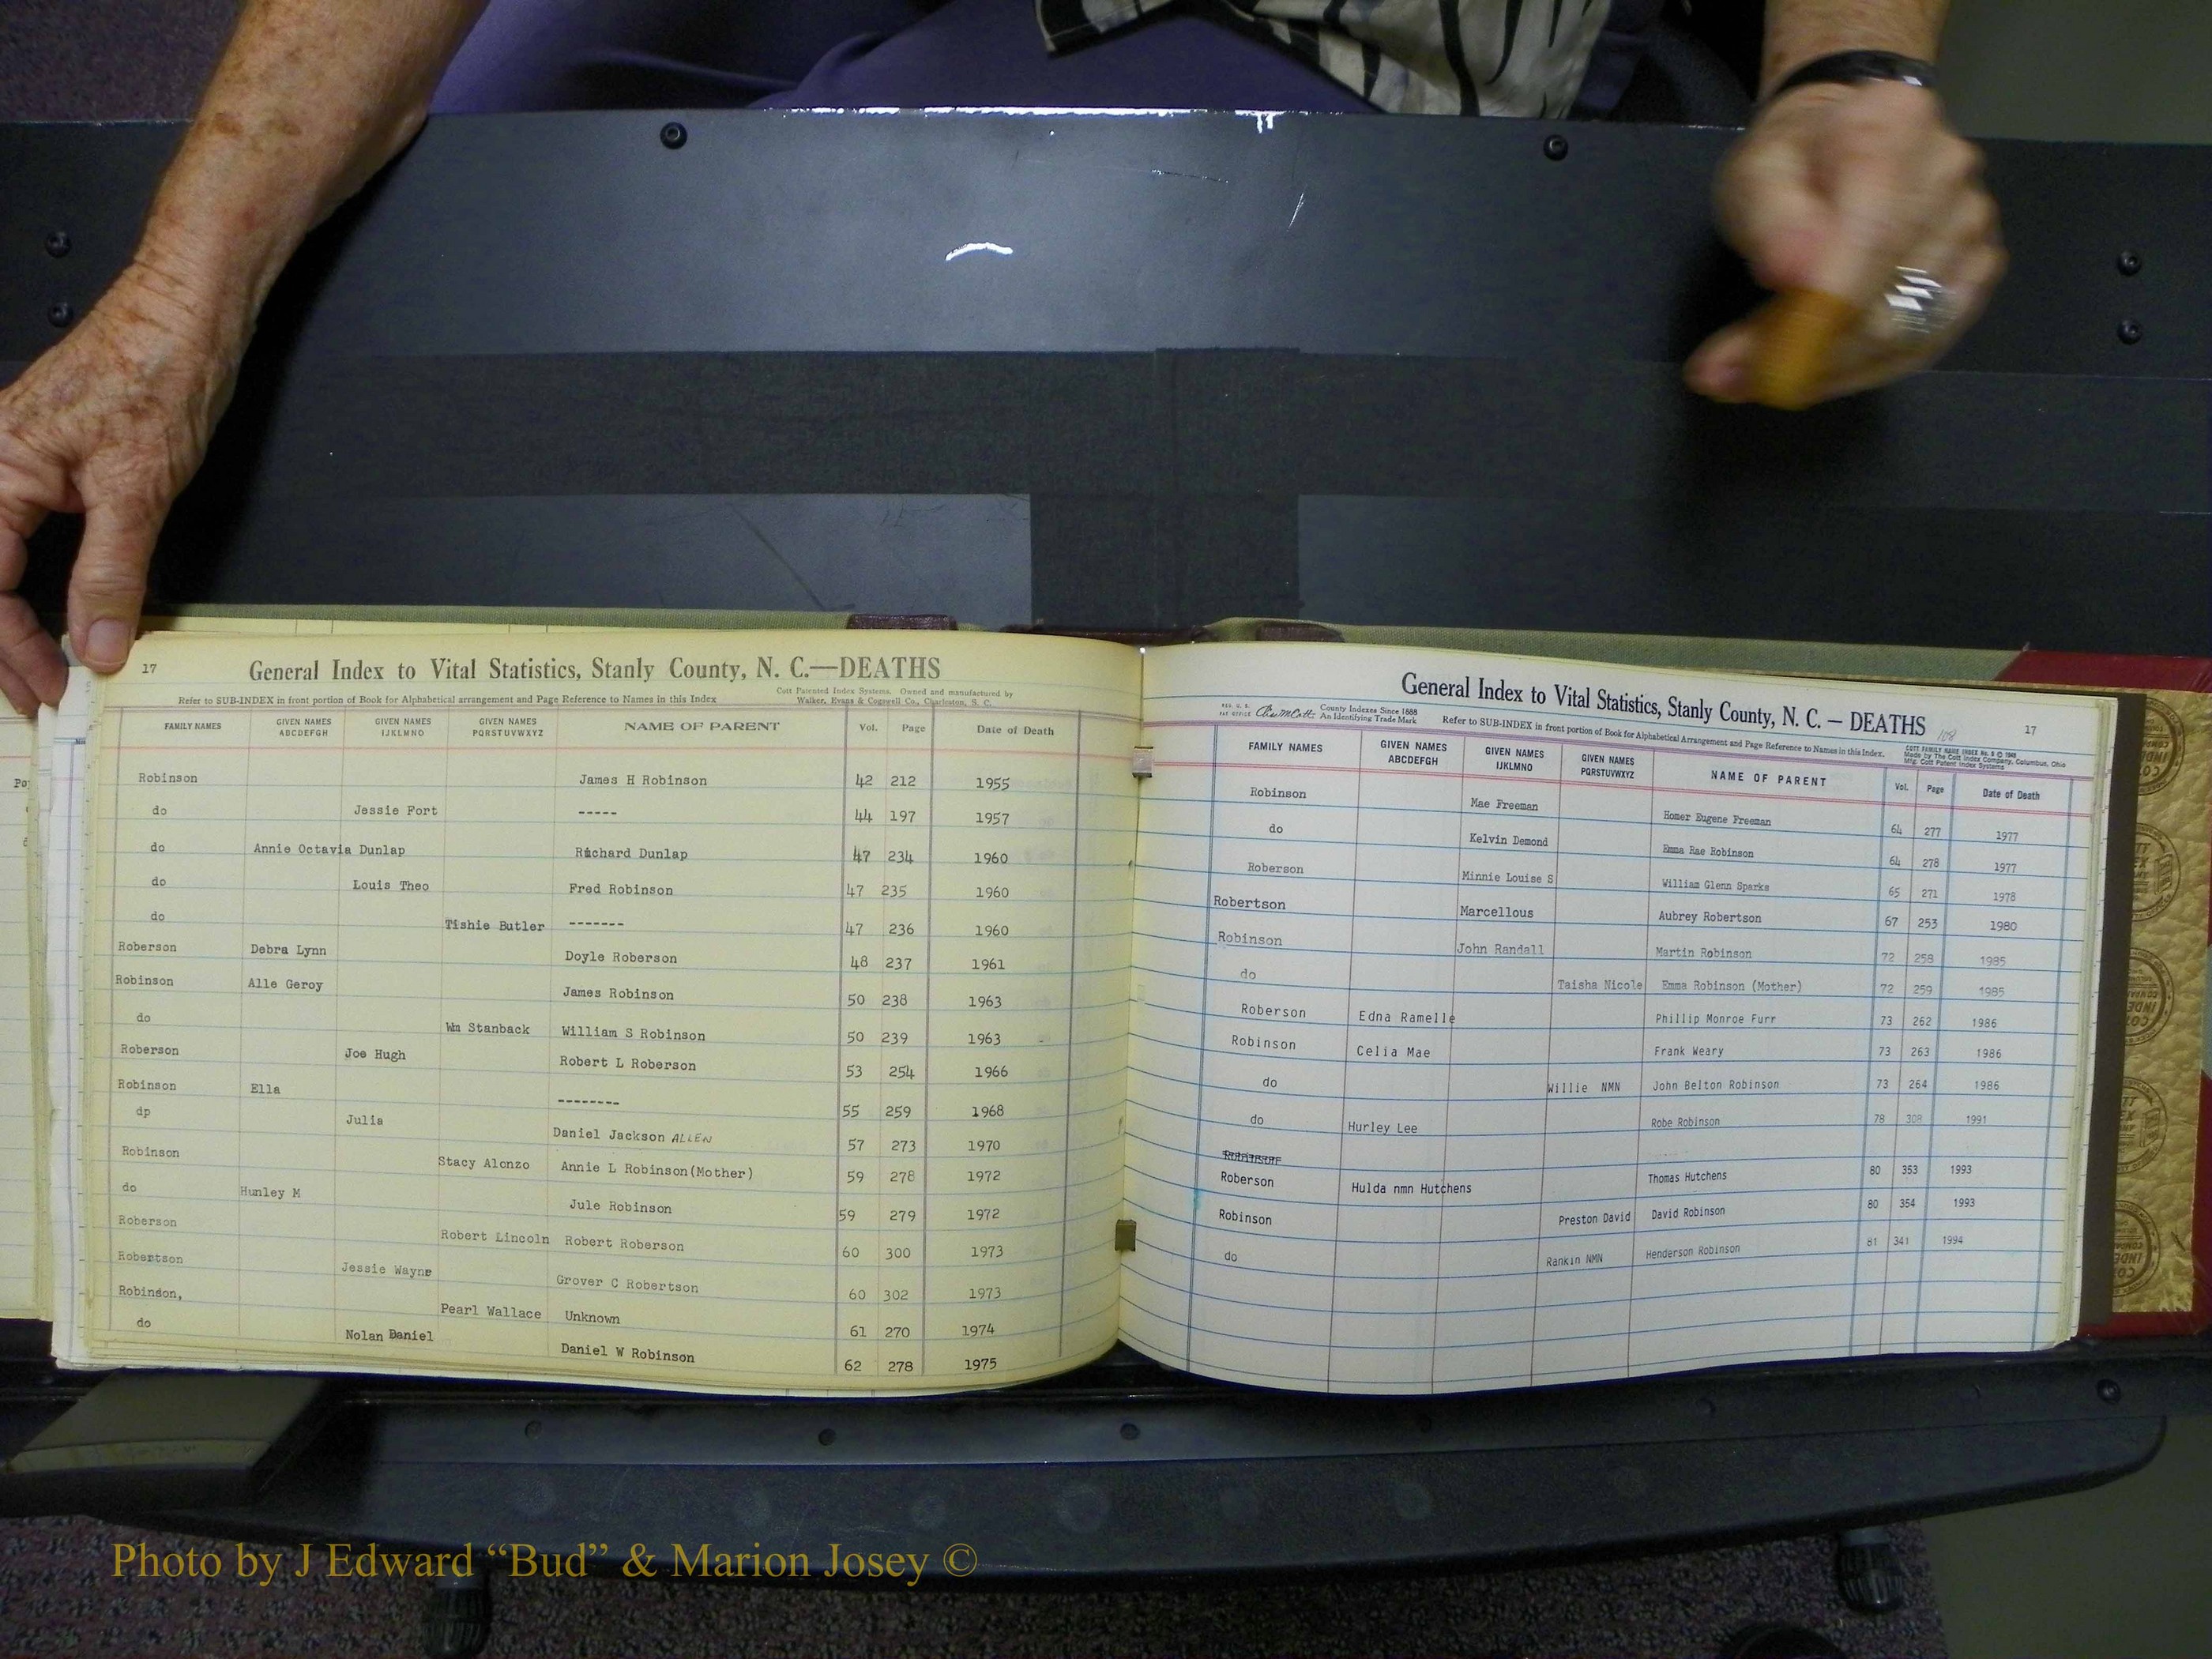 17
General Index to Vital Statistics, Stanly County, N. C.—DEATHS
Refer to SUB-INDEX in front portion of Book for Alphabetical arrangement and Page Reference to Names in this Index
Cott Patented Index Systems. Owned and manufactured by
Walker, Evans & Cogswell Co., Charleston, S. C.
FAMILY NAMES GIVEN NAMES ABCDEFGH GIVEN NAMES IJKLMNO GIVEN NAMES PQRSTUVWXYZ NAME OF PARENT Vol. Page Date of Death
Robinson James H Robinson 42 212 1955
do Jessie Fort ----- 44 197 1957
do Annie Octavia Dunlap Richard Dunlap 47 234 1960
do Louis Theo Fred Robinson 47 235 1960
do Tishie Butler ------- 47 236 1960
Roberson Debra Lynn Doyle Roberson 48 237 1961
Robinson Alle Geroy James Robinson 50 238 1963
do Wm Stanback William S Robinson 50 239 1963
Roberson Joe Hugh Robert L Roberson 53 254 1966
Robinson Ella -------- 55 259 1968
dp Julia Daniel Jackson ALLEN 57 273 1970
Robinson Stacy Alonzo Annie L Robinson(Mother) 59 278 1972
do Hunley M Jule Robinson 59 279 1972
Roberson Robert Lincoln Robert Roberson 60 300 1973
Robertson Jessie Wayne Grover C Robertson 60 302 1973
Robinson, Pearl Wallace Unknown 61 270 1974
do Nolan Daniel Daniel W Robinson 62 278 1975
General Index to Vital Statistics, Stanly County, N. C. — DEATHS
17
168
REG. U. S. PAT. OFFICE
County Indexes Since 1888
An Identifying Trade Mark
Refer to SUB-INDEX in front portion of Book for Alphabetical Arrangement and Page Reference to Names in this Index.
Made by The Cott Index Company, Columbus, Ohio
Mfg. Cott Patent Index Systems
FAMILY NAMES GIVEN NAMES ABCDEFGH GIVEN NAMES IJKLMNO GIVEN NAMES PQRSTUVWXYZ NAME OF PARENT Vol. Page Date of Death
Robinson Mae Freeman Homer Eugene Freeman 64 277 1977
do Kelvin Demond Emma Rae Robinson 64 278 1977
Roberson Minnie Louise S William Glenn Sparks 65 271 1978
Robertson Marcellous Aubrey Robertson 67 253 1980
Robinson John Randall Martin Robinson 72 258 1985
do Taisha Nicole Emma Robinson (Mother) 72 259 1985
Roberson Edna Ramelle Phillip Monroe Furr 73 262 1986
Robinson Celia Mae Frank Weary 73 263 1986
do Willie NMN John Belton Robinson 73 264 1986
do Hurley Lee Robe Robinson 78 308 1991
Robinson
Roberson Hulda nmn Hutchens Thomas Hutchens 80 353 1993
Robinson Preston David David Robinson 80 354 1993
do Rankin NMN Henderson Robinson 81 341 1994
Photo by J Edward “Bud” & Marion Josey ©